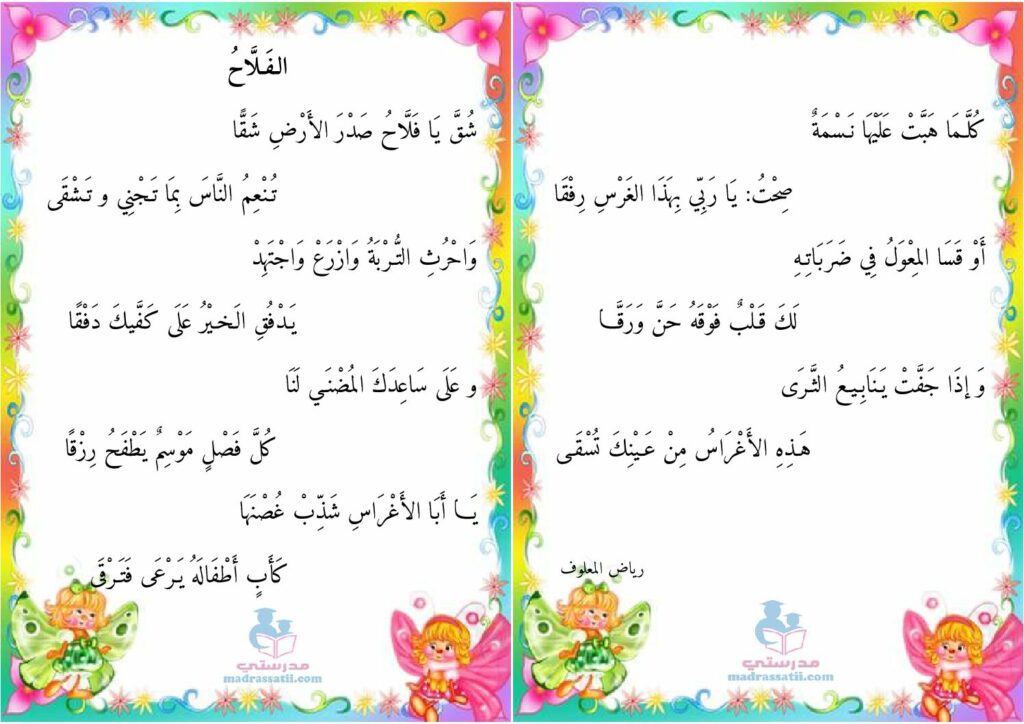 الفَلَّاحُ
شُقَّ يَا فَلَّاحُ صَدْرَ الأَرْضِ شَقًّا
تُنْعِمُ النَّاسَ بِمَا تَجْنِي و تَشْقَى
وَاحْرُثِ التُّرْبَةُ وَازْرَعْ وَاجْتَهِدْ
يَدْفُقِ الَخيْرُ عَلَى كَفَّيكَ دَفْقًا
و عَلَى سَاعِدَكَ المُضْنَي لَنَا
كُلَّ فَصْلٍ مَوْسِمٌ يَطْفَحُ رِزْقًا
يَا أَبَا الأَغْرَاسِ شَذِّبْ غُصْنَهَا
كَأَبٍ أَطْفَالَهُ يَرْعَى فَتَرْقَى
مدرستي
madrassatii.com
كُلَّمَا هَبَّتْ عَلَيْهَا نَسْمَةٌ
صِحْتُ: يَا رَبِّي بِهَذَا الغَرْسِ رِفْقَا
أَوْ قَسَا المِعْوَلُ فِي ضَرَبَاتِهِ
لَكَ قَلْبٌ فَوْقَهُ حَنَّ وَرَقَّا
وَ إذَا جَفَّتْ يَنَابِيعُ الثَّرَى
هَذِهِ الأَغْرَاسُ مِنْ عَيْنِكَ تُسْقَى
رياض المعلوف
مدرستي
madrassatii.com